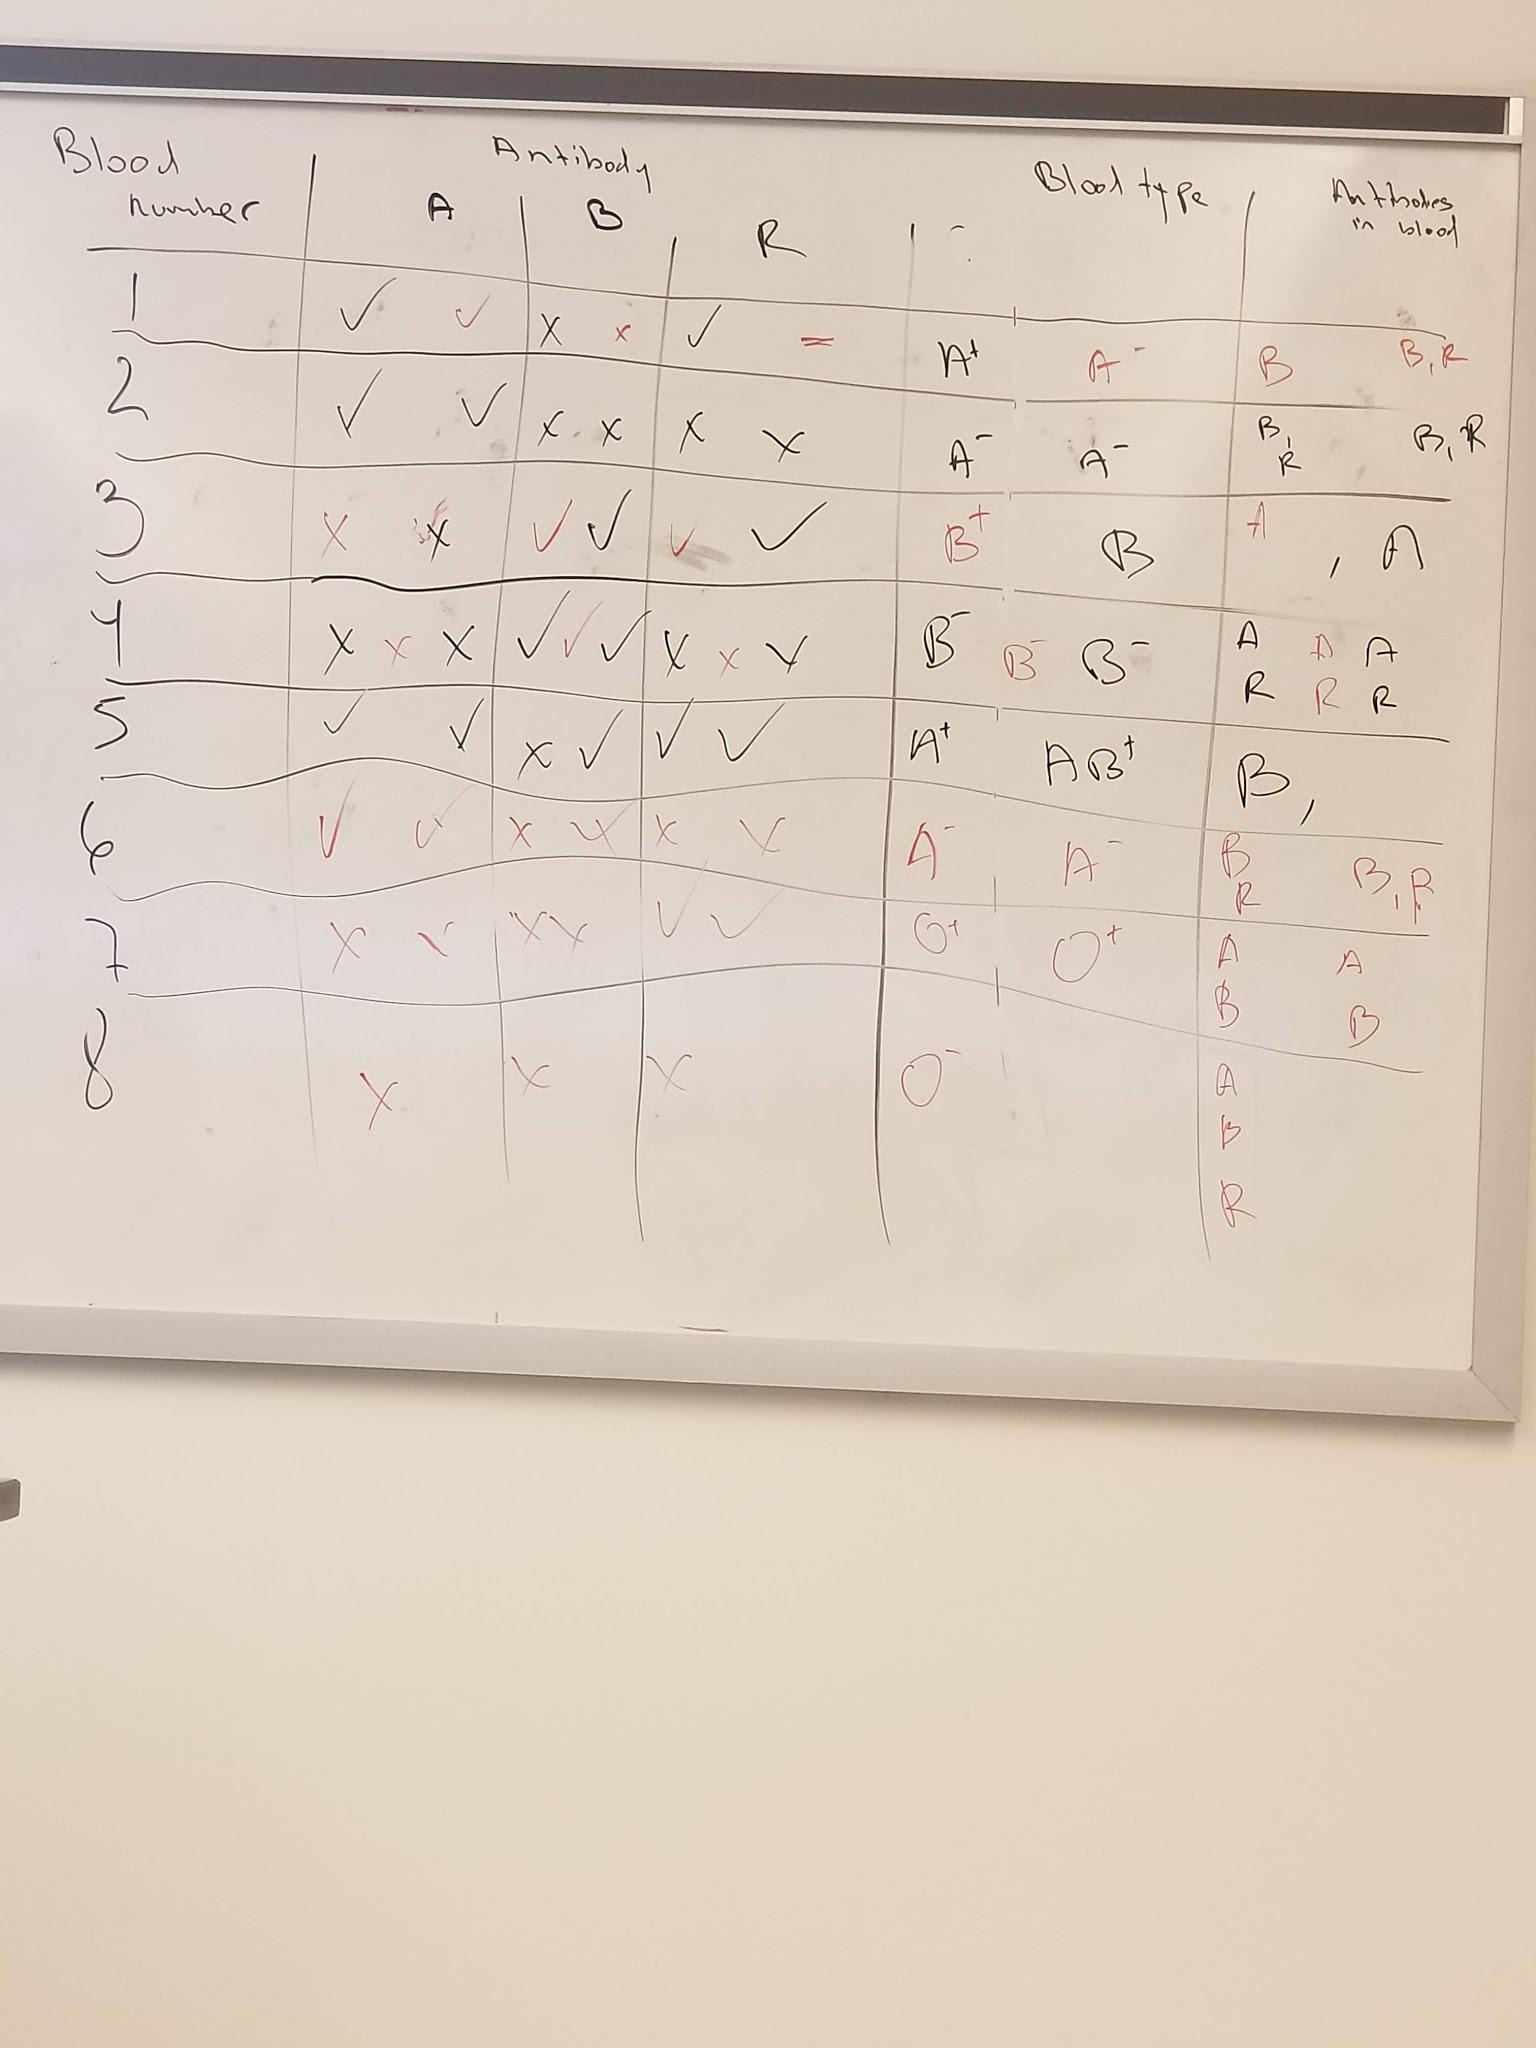 Blood Antibody Blood type Antibodes
number A B R in blood
1 ✓ ✓ x x ✓ = A+ A- B B, R
2 ✓ ✓ x x x x A- A- B, R B, R
3 x x ✓ ✓ ✓ ✓ B+ B A , A
4 x x x ✓ ✓ ✓ x x x B- B- B- A A A
R R R
5 ✓ ✓ x ✓ ✓ ✓ A+ AB+ B,
6 ✓ ✓ x x x x A- A- B B, R
R
7 x x x ✓ ✓ O+ O+ A A
B B
8 x x x O- A
B
R